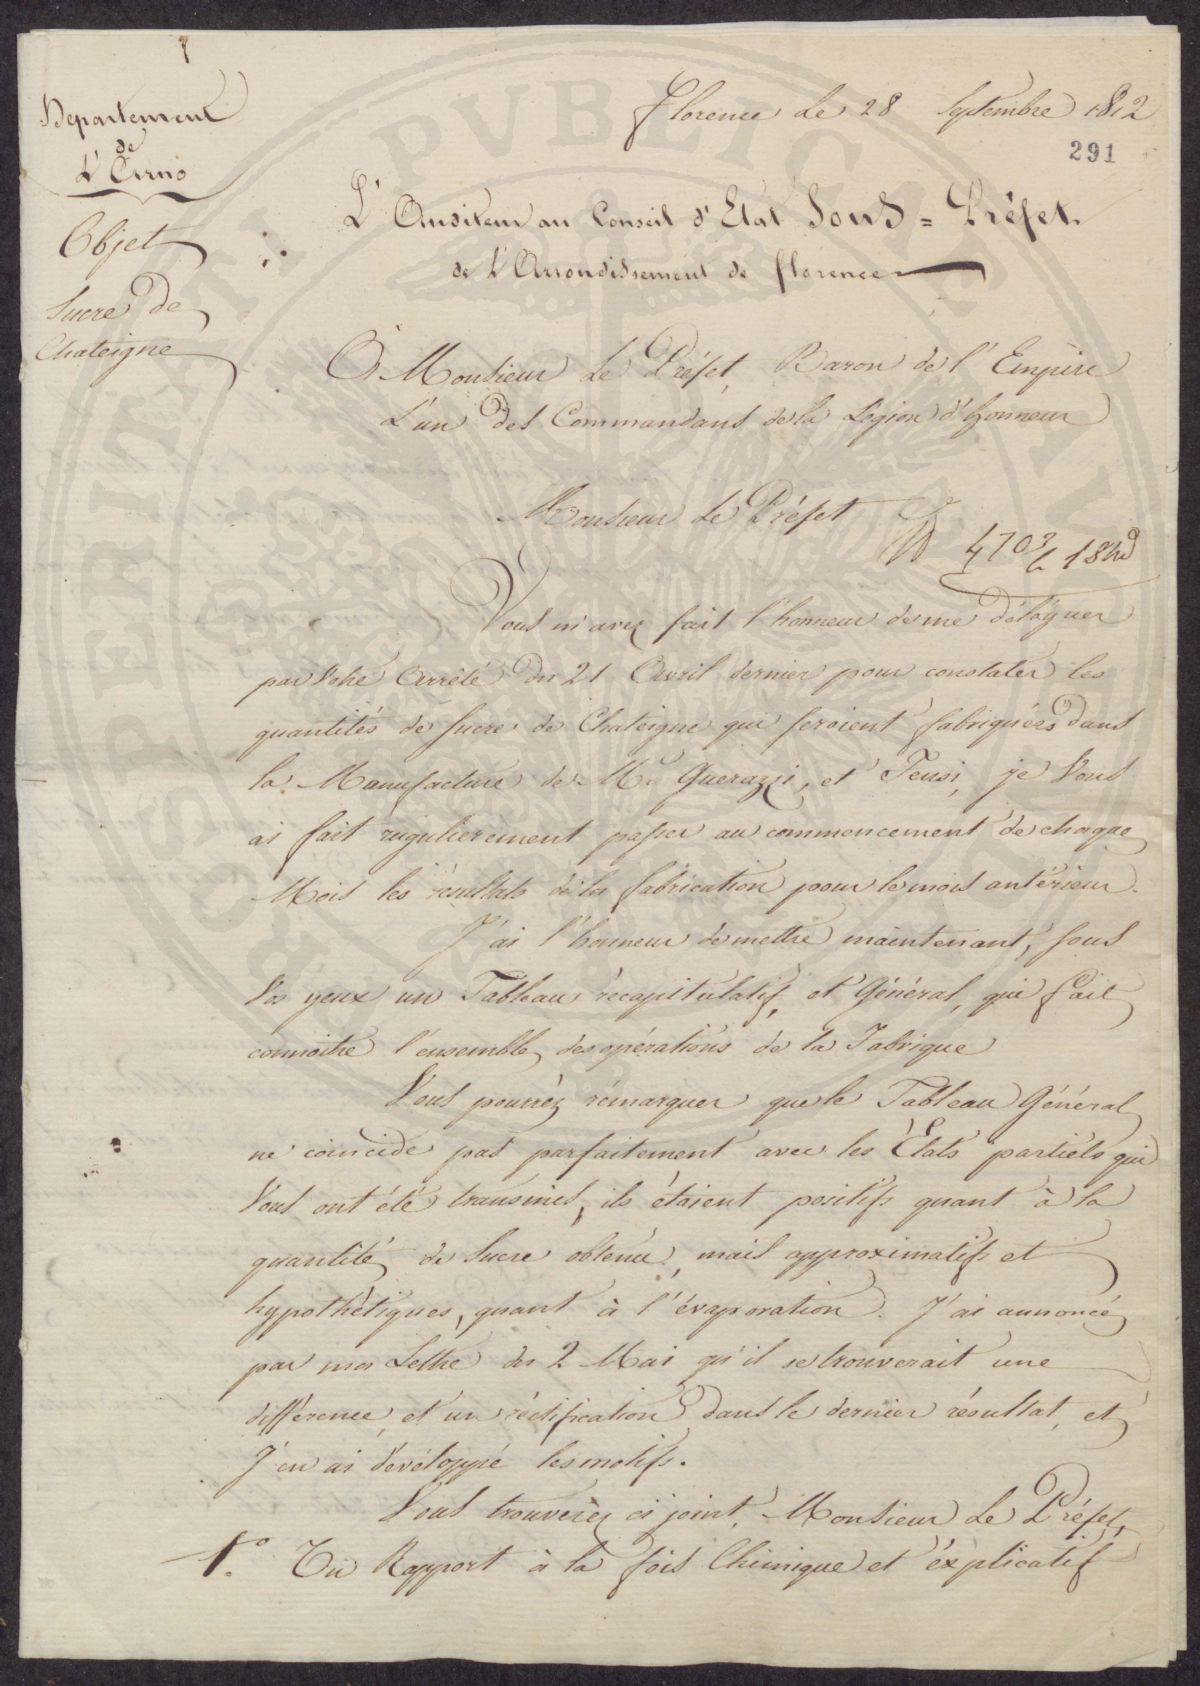 Departement
de
L'Arno
Objet
Sucre de
Chateigne
Florence le 28 Septembre 1812
291
L'Auditeur au Conseil d'Etat Sous = Préfet
de L'Arrondissement de florence
A Monsieur Le Préfet, Baron de l'Empire
L'un des Commandans de la Légion d'honneur
Monsieur Le Préfet
4703
Vous m'avez fait l'honneur de me déléguer
par Votre Arrêté du 21 Avril dernier pour constater les
quantités de Sucre de Chateigne qui seroient fabriquées dans
la Manufacture de Mrs Guerazzi, et Tensi, je Vous
ai fait régulierement passer au commencement de chaque
Mois les résultats de la fabrication pour le mois antérieur.
J'ai l'honneur de mettre maintenant, sous
Vos yeux un Tableau récapitulatif, et Général, qui fait
connoitre l'ensemble des opérations de la Fabrique
Vous pourréz rémarquer que le Tableau Général
ne coincide pas parfaitement avec les États partiels qui
Vous ont été transmis, ils étaient positifs quant à la
quantité de Sucre obtenu, mais approximatifs et
hypothètiques, quant à l'évaporation. J'ai annoncé
par ma Lettre du 2 Mai qu'il se trouverait une
différence, et un réctification dans le dernier résultat, et
J'en ai dévéloppé les motifs.
Vous trouveréz ci joint, Monsieur Le Préfet,
1.° Un Rapport à la fois Chimique et éxplicatif
PVBLICAE